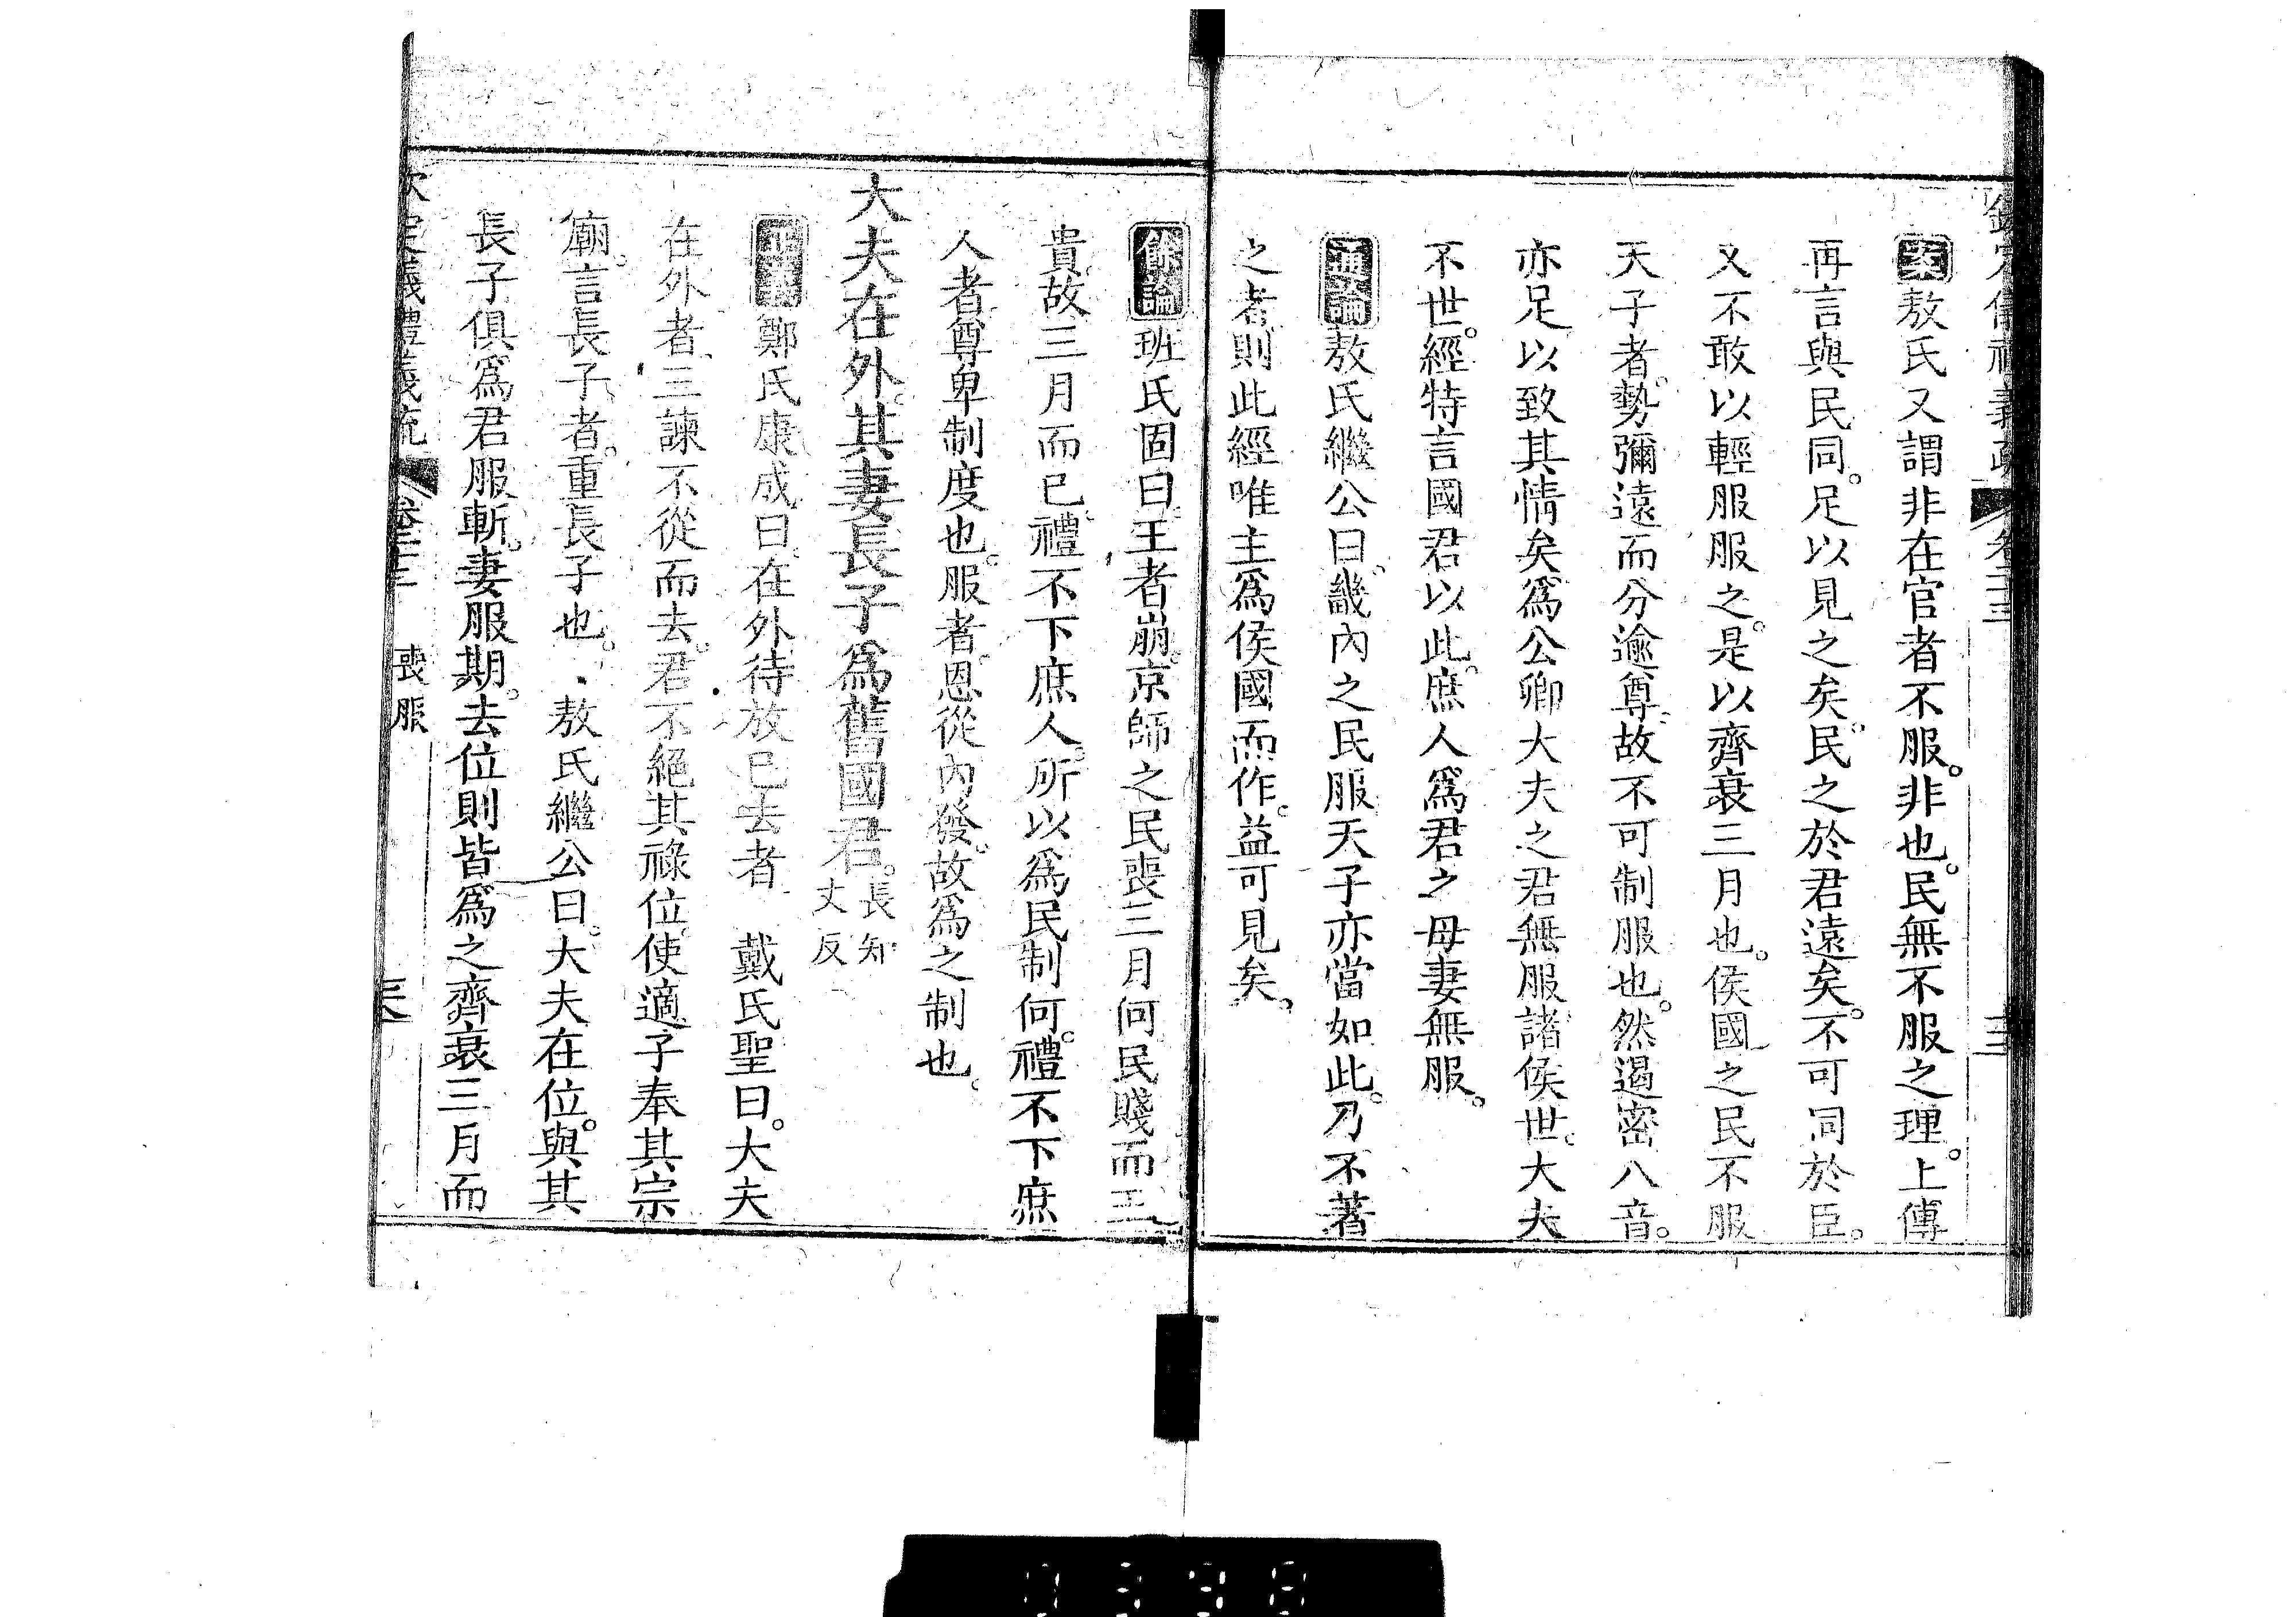 欽定儀禮義疏　卷二十三
案敖氏又謂非在官者不服。非也。民無不服之理。上傳
再言與民同。足以見之矣。民之於君遠矣。不可同於臣。
又不敢以輕服服之。是以齊衰三月也。侯國之民不服
天子者。勢彌遠而分逾尊。故不可制服也。然遏密八音。
亦足以致其情矣。爲公卿大夫之君無服。諸侯世。大夫
不世。經特言國君以此。庶人爲君之母妻無服。
通論敖氏繼公曰。畿內之民服天子亦當如此。乃不著
之者。則此經唯主爲侯國而作。益可見矣。
餘論班氏固曰。王者崩。京師之民喪三月何。民賤而王
貴。故三月而已。禮不下庶人。所以爲民制何。禮不下庶
人者。尊卑制度也。服者。恩從內發。故爲之制也。
大夫在外。其妻長子爲舊國君。長知丈反
正義鄭氏康成曰。在外待放已去者　戴氏聖曰。大夫
在外者。三諫不從而去。君不絕其祿位。使適子奉其宗
廟。言長子者。重長子也。　敖氏繼公曰。大夫在位。與其
長子俱爲君服斬。妻服期。去位則皆爲之齊衰三月而
欽定儀禮義疏　卷二十三　喪服